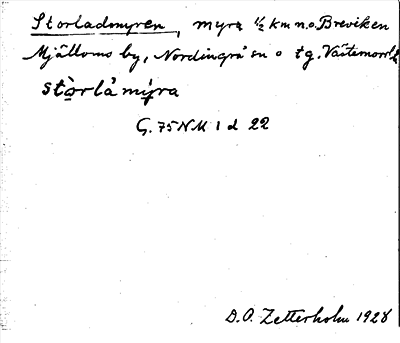 Storladomyren, myra 1/2 km n.o. Breviken
Mjälloms by, Nordingrå sn o tg. Västernorrl.
stòrlåmýra
G. 75 NM 1 d 22
D.O. Zetterholm 1928